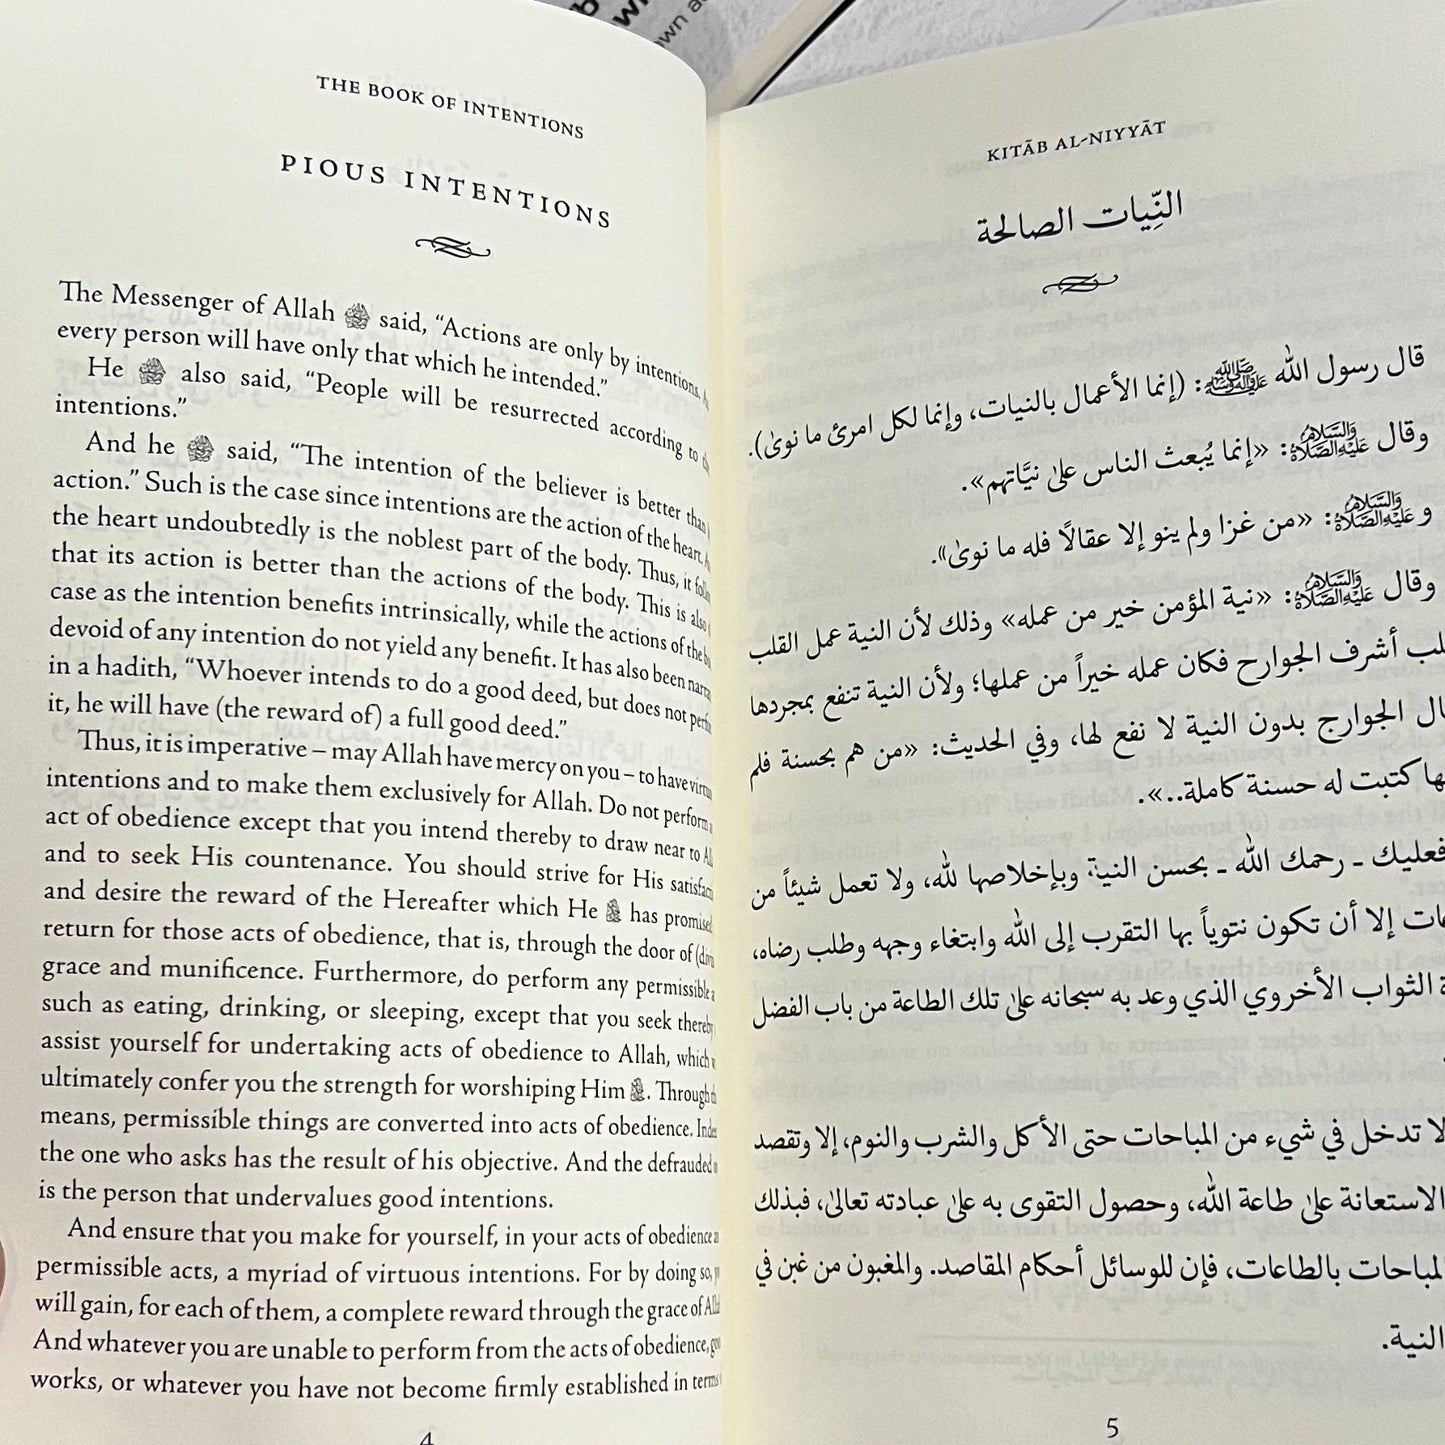 THE BOOK OF INTENTIONS
PIOUS INTENTIONS
The Messenger of Allah ﷺ said, “Actions are only by intentions.
every person will have only that which he intended.”
He ﷺ also said, “People will be resurrected according to
intentions.”
And he ﷺ said, “The intention of the believer is better than
action.” Such is the case since intentions are the action of the heart.
the heart undoubtedly is the noblest part of the body. Thus, it
that its action is better than the actions of the body. This is
case as the intention benefits intrinsically, while the actions of the
devoid of any intention do not yield any benefit. It has also been
in a hadith, “Whoever intends to do a good deed, but does not
it, he will have (the reward of) a full good deed.”
Thus, it is imperative – may Allah have mercy on you – to have
intentions and to make them exclusively for Allah. Do not perform
act of obedience except that you intend thereby to draw near to
and to seek His countenance. You should strive for His
and desire the reward of the Hereafter which He has
return for those acts of obedience, that is, through the door of
grace and munificence. Furthermore, do perform any permissible
such as eating, drinking, or sleeping, except that you seek
assist yourself for undertaking acts of obedience to Allah, which
ultimately confer you the strength for worshiping Him. Through
means, permissible things are converted into acts of obedience.
the one who asks has the result of his objective. And the defrauded
is the person that undervalues good intentions.
And ensure that you make for yourself, in your acts of obedience
permissible acts, a myriad of virtuous intentions. For by doing so,
will gain, for each of them, a complete reward through the grace of
And whatever you are unable to perform from the acts of obedience,
works, or whatever you have not become firmly established in terms
4
KITĀB AL-NIYYĀT
النِّيات الصالحة
قال رسول الله ﷺ: (إنما الأعمال بالنيات، وإنما لكل امرئ ما نوىٰ).
وقال عَلَيْهِ الصَّلَاةُ وَالسَّلَامُ: «إنما يُبعث الناس علىٰ نيَّاتهم».
و عَلَيْهِ الصَّلَاةُ وَالسَّلَامُ: «من غزا ولم ينو إلا عقالًا فله ما نوىٰ».
وقال عَلَيْهِ الصَّلَاةُ وَالسَّلَامُ: «نية المؤمن خير من عمله» وذلك لأن النية عمل القلب
أشرف الجوارح فكان عمله خيراً من عملها؛ ولأن النية تنفع بمجردها
الجوارح بدون النية لا نفع لها، وفي الحديث: «من هم بحسنة فلم
كتبت له حسنة كاملة..».
فعليك ـ رحمك الله ـ بحسن النية وبإخلاصها لله، ولا تعمل شيئاً من
إلا أن تكون نتوياً بها التقرب إلى الله وابتغاء وجهه وطلب رضاه،
الثواب الأخروي الذي وعد به سبحانه علىٰ تلك الطاعة من باب الفضل
لا تدخل في شيء من المباحات حتى الأكل والشرب والنوم، إلا وتقصد
الاستعانة علىٰ طاعة الله، وحصول التقوى به علىٰ عبادته تعالىٰ، فبذلك
المباحات بالطاعات، فإن للوسائل أحكام المقاصد. والمغبون من غبن في
النية.
5